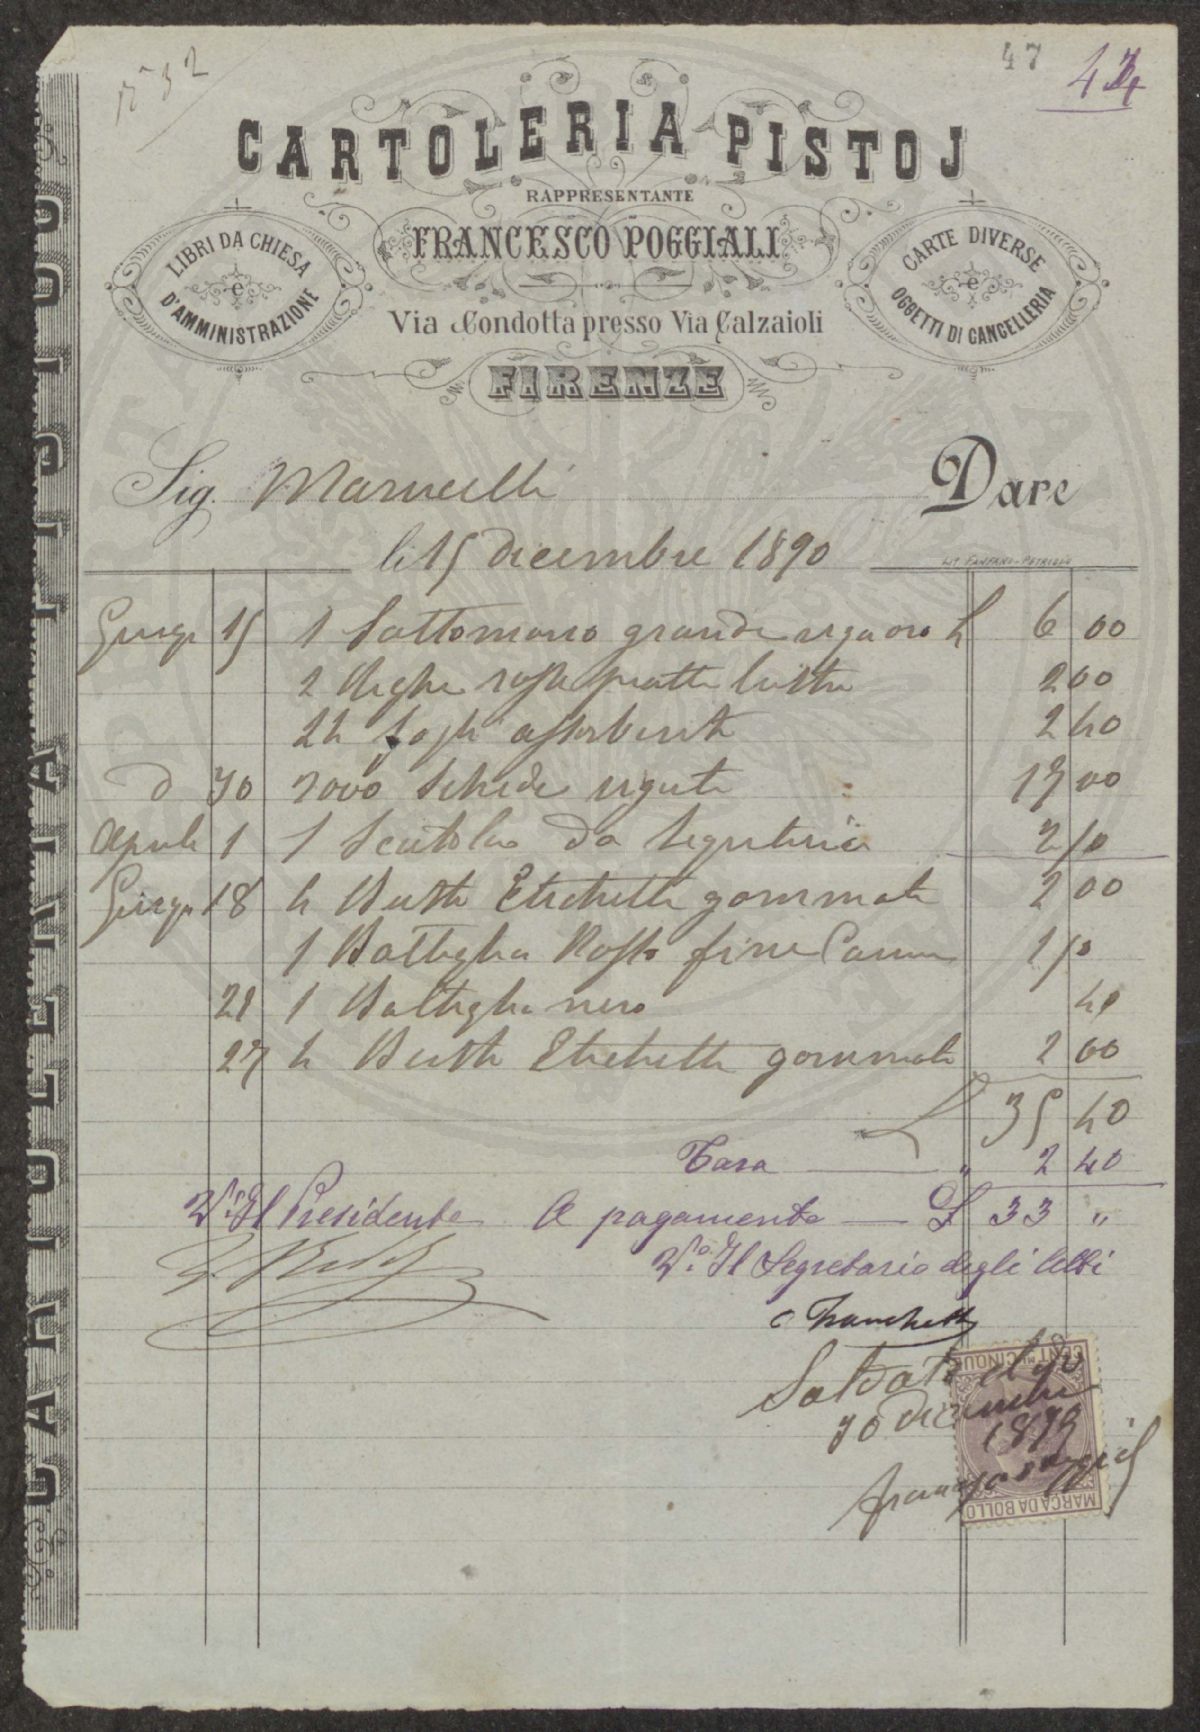 47
CARTOLERIA PISTOJ
RAPPRESENTANTE
FRANCESCO POGGIALI
LIBRI DA CHIESA
e
D'AMMINISTRAZIONE
CARTE DIVERSE
e
OGGETTI DI CANCELLERIA
Via Condotta presso Via Calzaioli
FIRENZE
CARTOLERIA PISTOJ
Sig. Marucelli Dare
li 15 dicembre 1890
LIT. FANFANI-PETRIOLI
15 1 Sottomano grande L 6 00
2 2 00
24 fogli 2 40
d 30 2000 Schede rigate 17 00
Aprile 1 1 Scatola da 2 10
18 4 Buste Etichette gommate 2 00
1 Bottiglia Rosso fine 1 50
21 1 Bottiglia nero 40
27 4 Buste Etichette gommate 2 00
L 35 40
Tara " 2 40
V° Il Presidente A pagamento L 33 "
V° Il Segretario degli
Saldato
30 dicembre
CENT.MI CINQUE
MARCA DA BOLLO